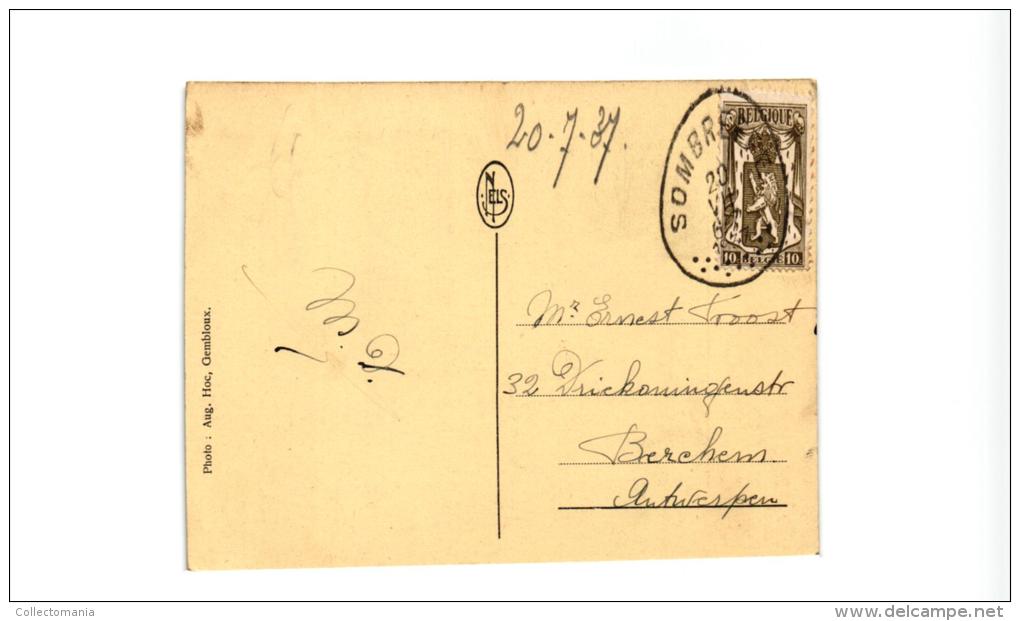 20-7-37.
BELGIQUE
SOMBRE
20
10 BELGIE 10
NELS
Mr Ernest Troost
32 Driekoningenstr
Berchem
Antwerpen
Photo : Aug. Hoc, Gembloux.
Collectomania
www.delcampe.net